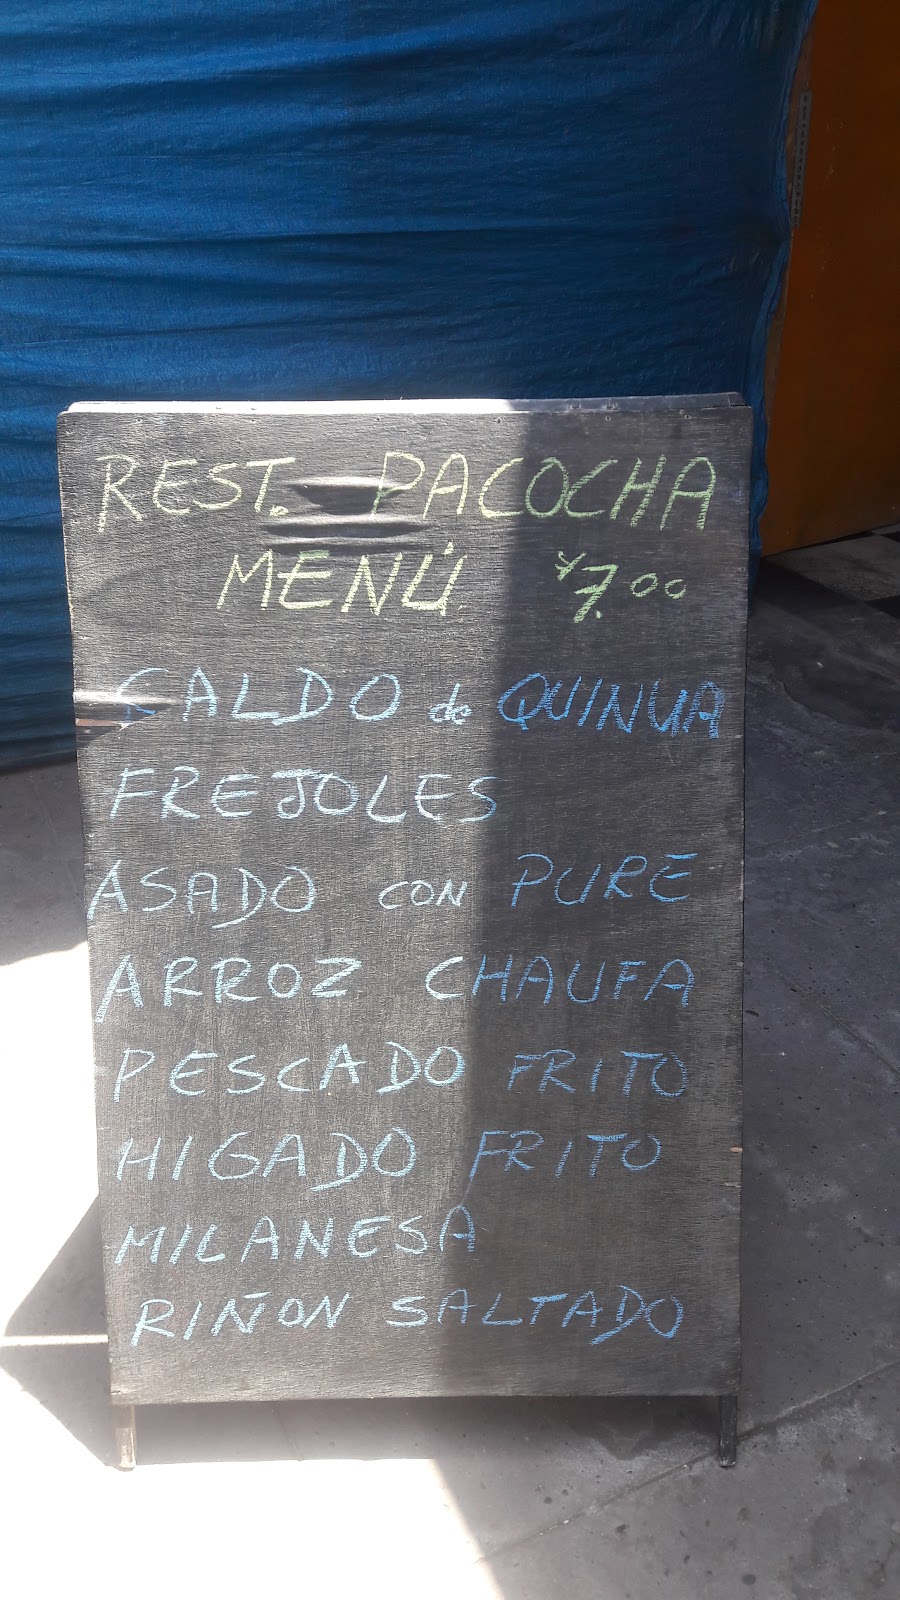 REST. PACOCHA
MENÚ. 7.00
CALDO de QUINUA
FREJOLES
ASADO CON PURE
ARROZ CHAUFA
PESCADO FRITO
HIGADO FRITO
MILANESA
RIÑON SALTADO